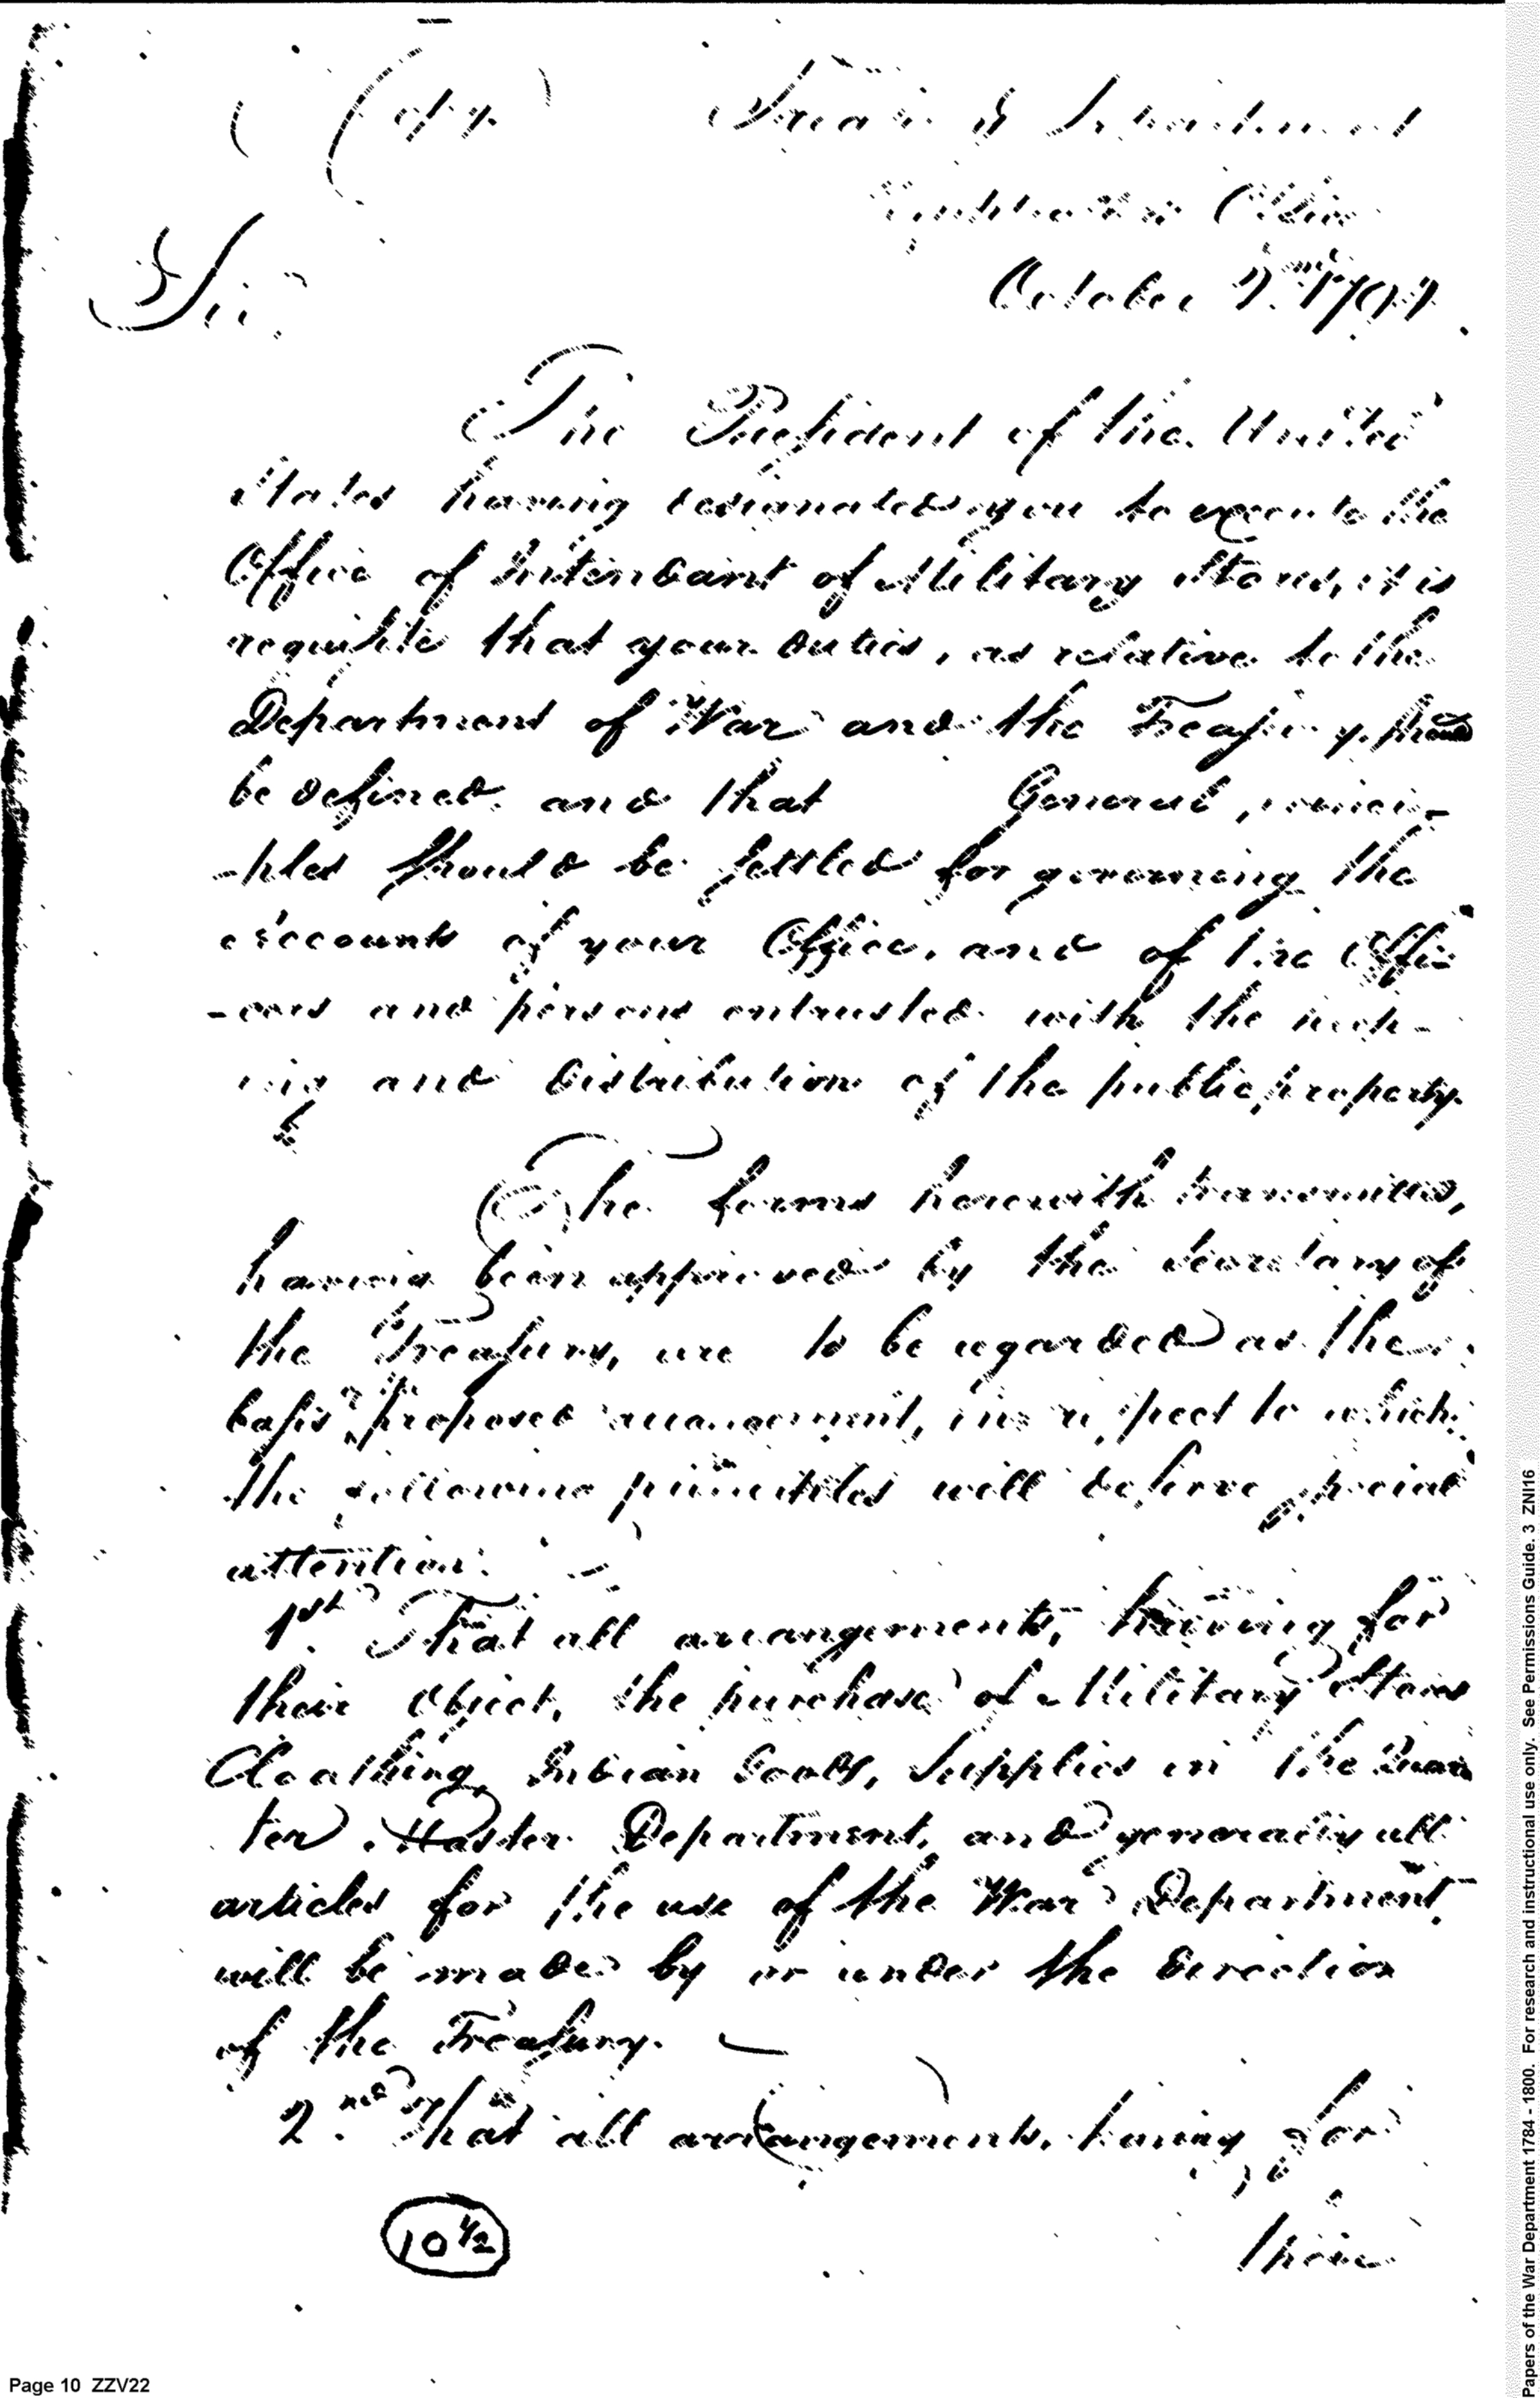 (Copy)
Treasury Department
Comptroller's Office
October 2nd 1794.
Sir,
The President of the United
States having designated you to execute the
Office of Intendant of Military Stores, it is
requisite that your duties, as relative to the
Department of War and the Treasury should
be defined, and that General princi-
-ples should be settled for governing the
accounts of your Office, and of the Offi-
-cers and persons entrusted with the
and distribution of the public property.
The forms herewith transmitted,
having been approved by the Secretary of
the Treasury, are to be regarded as the
basis of the proposed arrangement, in respect to which
the following principles will deserve special
attention.
1st. That all arrangements, having for
their object, the purchase of Military Stores
Cloathing, Indian Goods, Supplies in the Quar
ter Master Department, and generally all
articles for the use of the War Department
will be made by or under the direction
of the Treasury.
2nd. That all arrangements, having for
their
10 1/2
Page 10 ZZV22
Papers of the War Department 1784 - 1800. For research and instructional use only. See Permissions Guide. 3 ZNI16